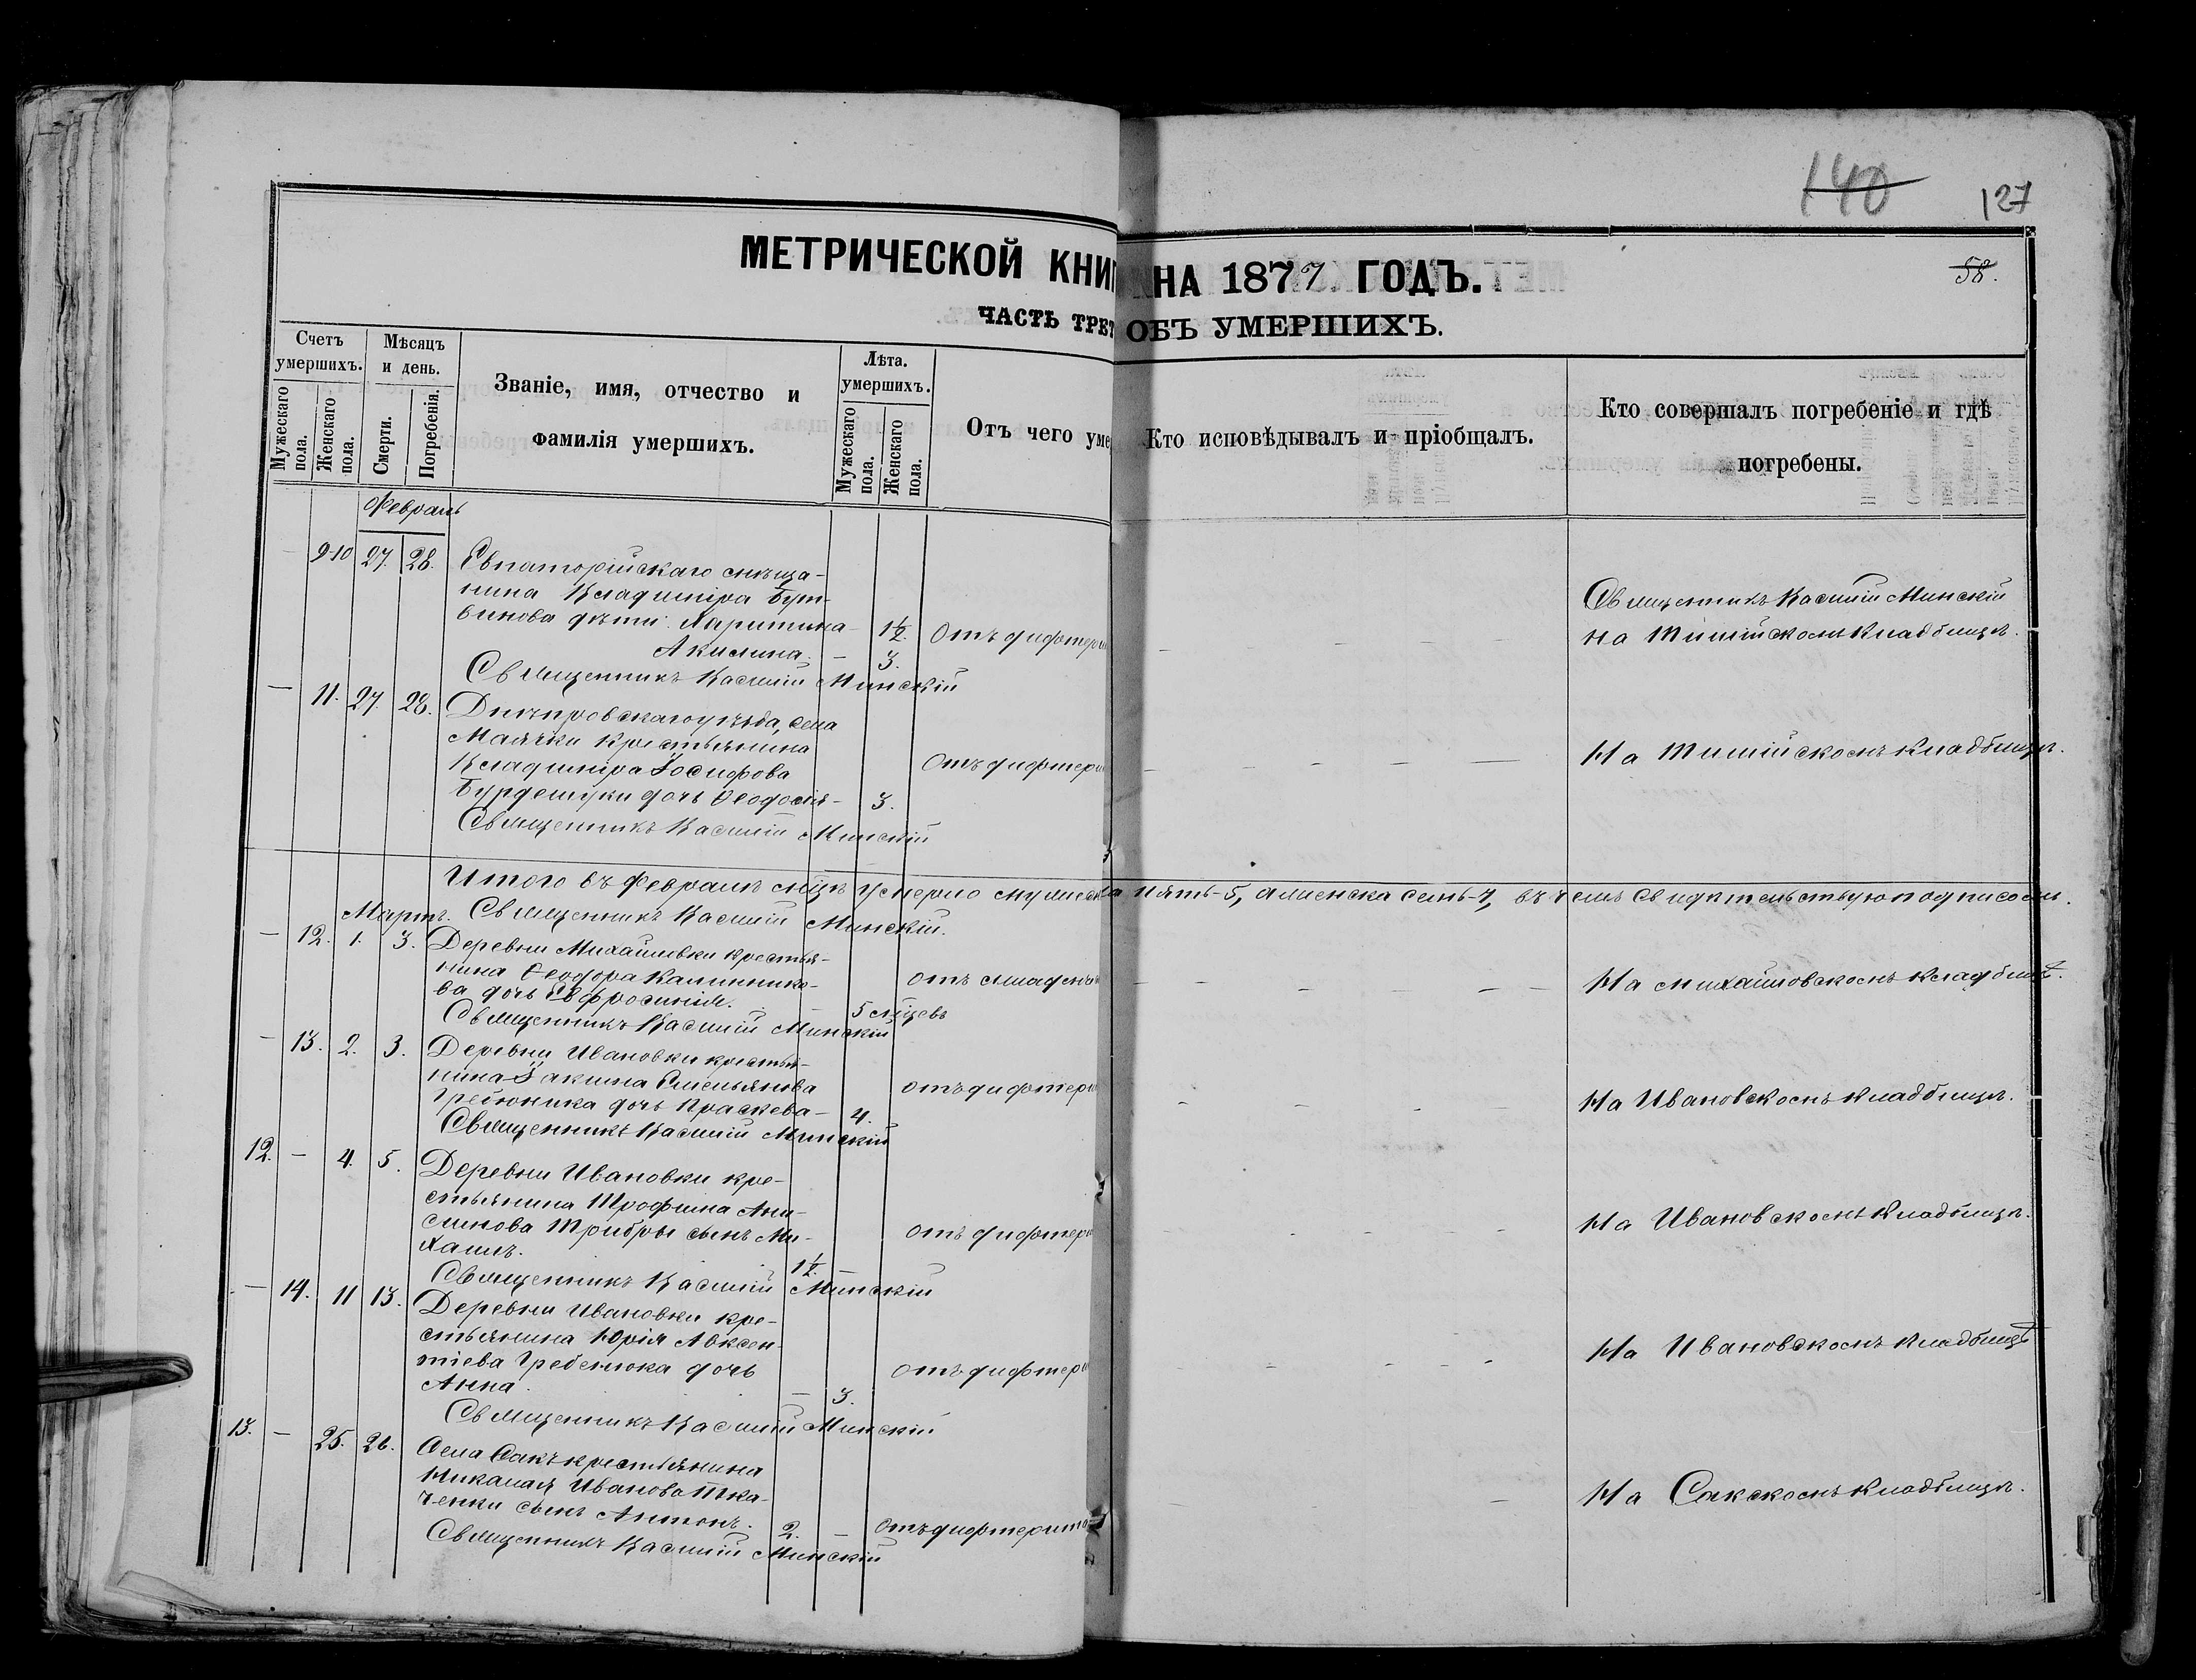 140 127
58.
МЕТРИЧЕСКОЙ КНИ НА 1877. ГОДЪ.
ЧАСТЬ ТРЕТ ОБЪ УМЕРШИХЪ.
Счетъ умершихъ.
Мужескаго пола.
Женскаго пола.
Мѣсяцъ и день.
Смерти.
Погребенія.
Званіе, имя, отчество и
фамилія умершихъ.
Лѣта. умершихъ.
Мужескаго пола.
Женскаго пола.
Отъ чего уме
Кто исповѣдывалъ и пріобщалъ.
Кто совершалъ погребеніе и гдѣ
погребены.
Февраль
— 9-10 27. 28. Евпаторійскаго мѣща-
нина Владиміра
дѣти: Харитина — 1½. Отъ дифтери
Акилина. — 3.
Священникъ Василій Минскій
на кладбищѣ.
Священникъ Василій Минскій
— 11. 27. 28. Днѣпровскаго уѣзда, села
Маячки крестьянина
Владиміра Іосифова Отъ дифтери
дочь Ѳеодосія — 3.
На кладбищѣ.
Священникъ Василій Минскій
Итого въ Февралѣ мѣсяцѣ умерло мужеска пять-5, а женска семь-7, въ чемъ свидѣтельствую подписомъ.
Мартъ. Священникъ Василій Минскій.
— 12. 1. 3. Деревни Михайловки крестья-
нина Ѳеодора Калиннико- отъ младенч
ва дочь Евфросинія. 5 мѣсцевъ
На Михайловскомъ кладбищѣ.
Священникъ Василій Минскій
— 13. 2. 3. Деревни Ивановки крестья-
нина Іакима Емельянова отъ дифтери
дочь Праскева — 4.
На Ивановскомъ кладбищѣ.
Священникъ Василій Минскій
12. — 4. 5. Деревни Ивановки кре-
стьянина Трофима Ани-
симова сынъ Ми- отъ дифтери
хаилъ. 1½. —
На Ивановскомъ кладбищѣ.
Священникъ Василій Минскій
— 14. 11 13. Деревни Ивановки кре-
стьянина Юрія Авксен-
тіева Гребенюка дочь отъ дифтери
Анна. — 3.
На Ивановскомъ кладбищѣ
Священникъ Василій Минскій
13. — 25. 26. Села Сакъ крестьянина
Николая Иванова Тка-
ченки сынъ Антонъ. 2. — Отъ дифтерито
На Сакскомъ кладбищѣ.
Священникъ Василій Минскій